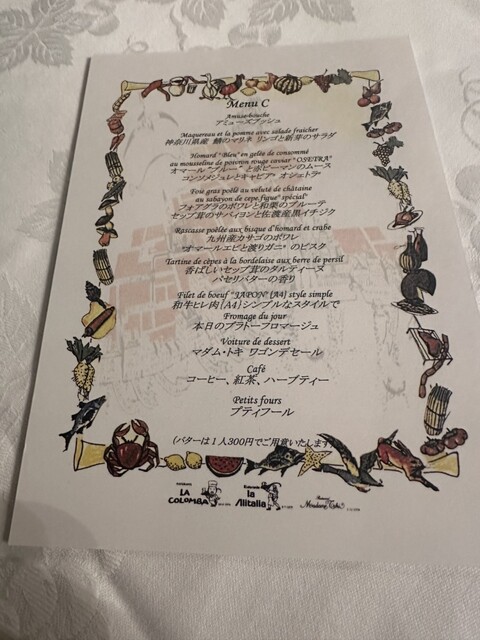 Menu C
Amuse-bouche
アミューズブッシュ
Maquereau et la pomme avec salade fraicher
神奈川県産 鯖のマリネ リンゴと新芽のサラダ
Homard "Bleu" en gelée de consommé
au mousseline de poivron rouge caviar "OSETRA"
オマール"ブルー"と赤ピーマンのムース
コンソメジュレとキャビア"オシェトラ"
Foie gras poêlé au veluté de châtaine
au sabayon de cepe.figue" spécial"
フォアグラのポワレと和栗のブルーテ
セップ茸のサバイヨンと佐渡産黒イチジク
Rascasse poêlée aux bisque d'homard et crabe
九州産カサゴのポワレ
"オマールエビと渡りガニ"のビスク
Tartine de cèpes à la bordelaise aux berre de persil
香ばしいセップ茸のタルティーヌ
パセリバターの香り
Filet de boeuf "JAPON" {A4} style simple
和牛ヒレ肉{A4}シンプルなスタイルで
Fromage du jour
本日のプラトーフロマージュ
Voiture de dessert
マダム・トキ ワゴンデセール
Café
コーヒー、紅茶、ハーブティー
Petits fours
プティフール
(バターは1人300円でご用意いたします
LA COLOMBA
la Alitalia
Madame Toki